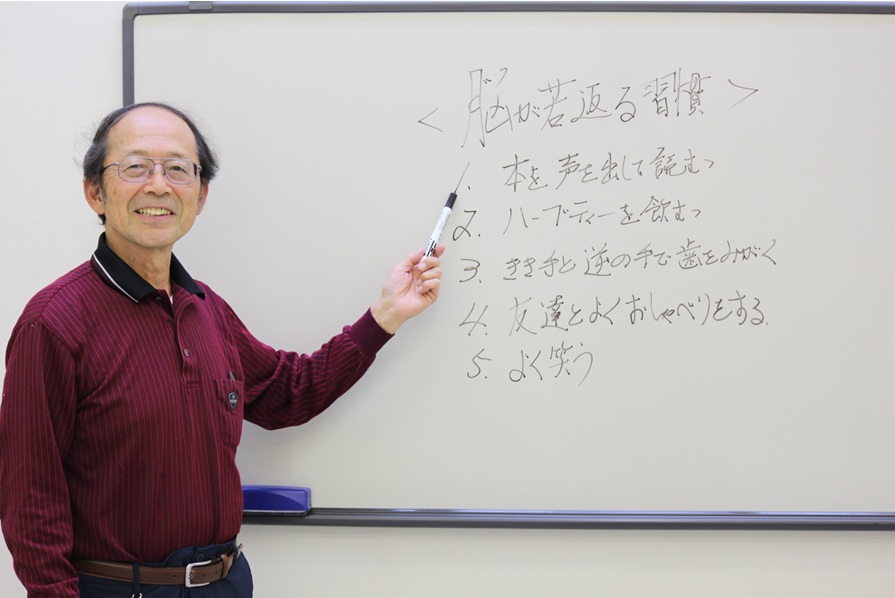 ＜脳が若返る習慣＞
1. 本を声を出して読む
2. ハーブティーを飲む
3. きき手と逆の手で歯をみがく
4. 友達とよくおしゃべりをする.
5. よく笑う